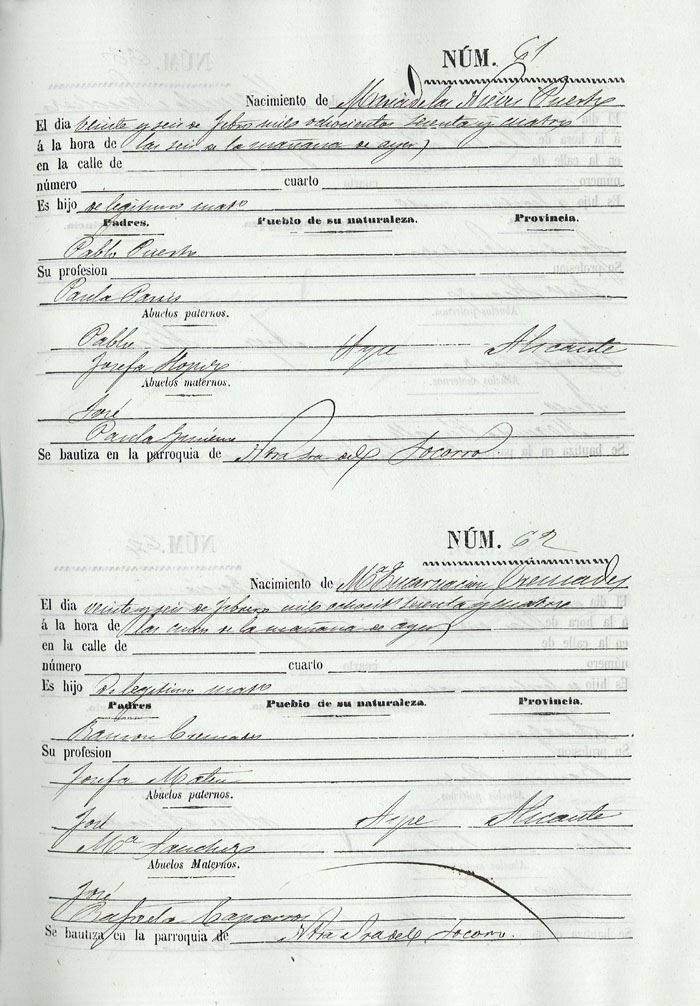 NÚM. 61
Nacimiento de Maria de las Nieves Puerto
El dia veinte y seis de Febro mil ochociento setenta y cuatro
á la hora de las seis de la mañana de ayer
en la calle de
número cuarto
Es hijo de legitimo mato
Padres. Pueblo de su naturaleza. Provincia.
Pablo Puerto
Su profesion
Paula
Abuelos paternos.
Pablo Aspe Alicante
Josefa
Abuelos maternos.
José
Paula
Se bautiza en la parroquia de Ntra Sra del Socorro
NÚM. 62
Nacimiento de Mª Encarnacion Cremades
El dia veinte y seis de Febrero mil ochoct setenta y cuatro
á la hora de las cinco de la mañana de ayer
en la calle de
número cuarto
Es hijo de legitimo mato
Padres Pueblo de su naturaleza. Provincia.
Ramon Cremades
Su profesion
Josefa Mateu
Abuelos paternos.
José Aspe Alicante
Mª Sanchez
Abuelos Maternos.
José
Rafaela Caparros
Se bautiza en la parroquia de Ntra Sra del Socorro.